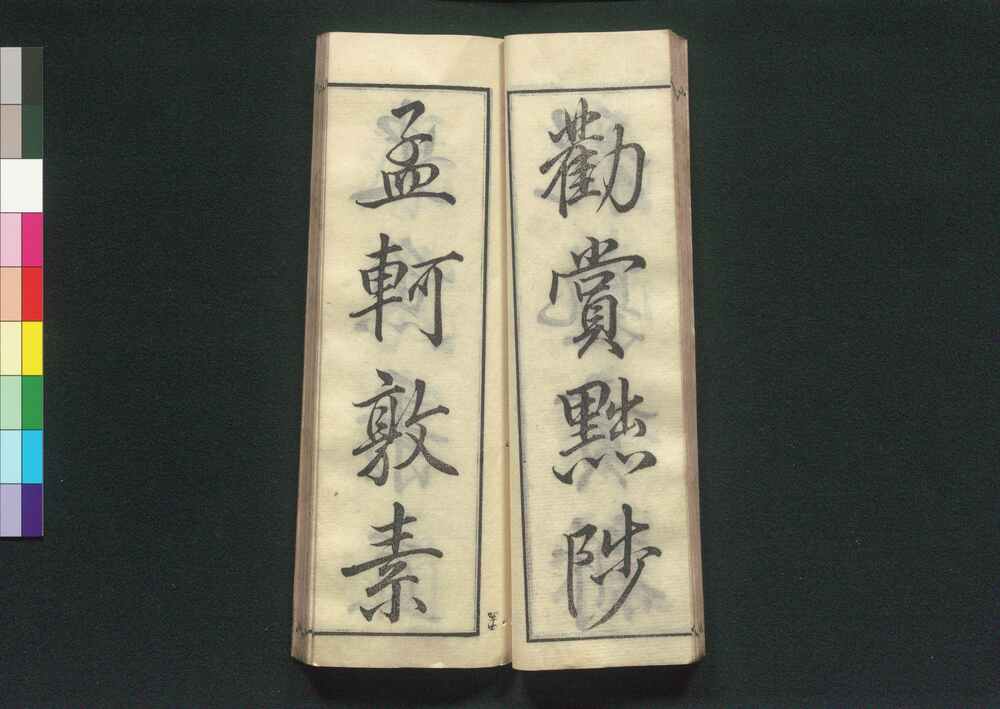 勸賞黜陟
孟軻敦素